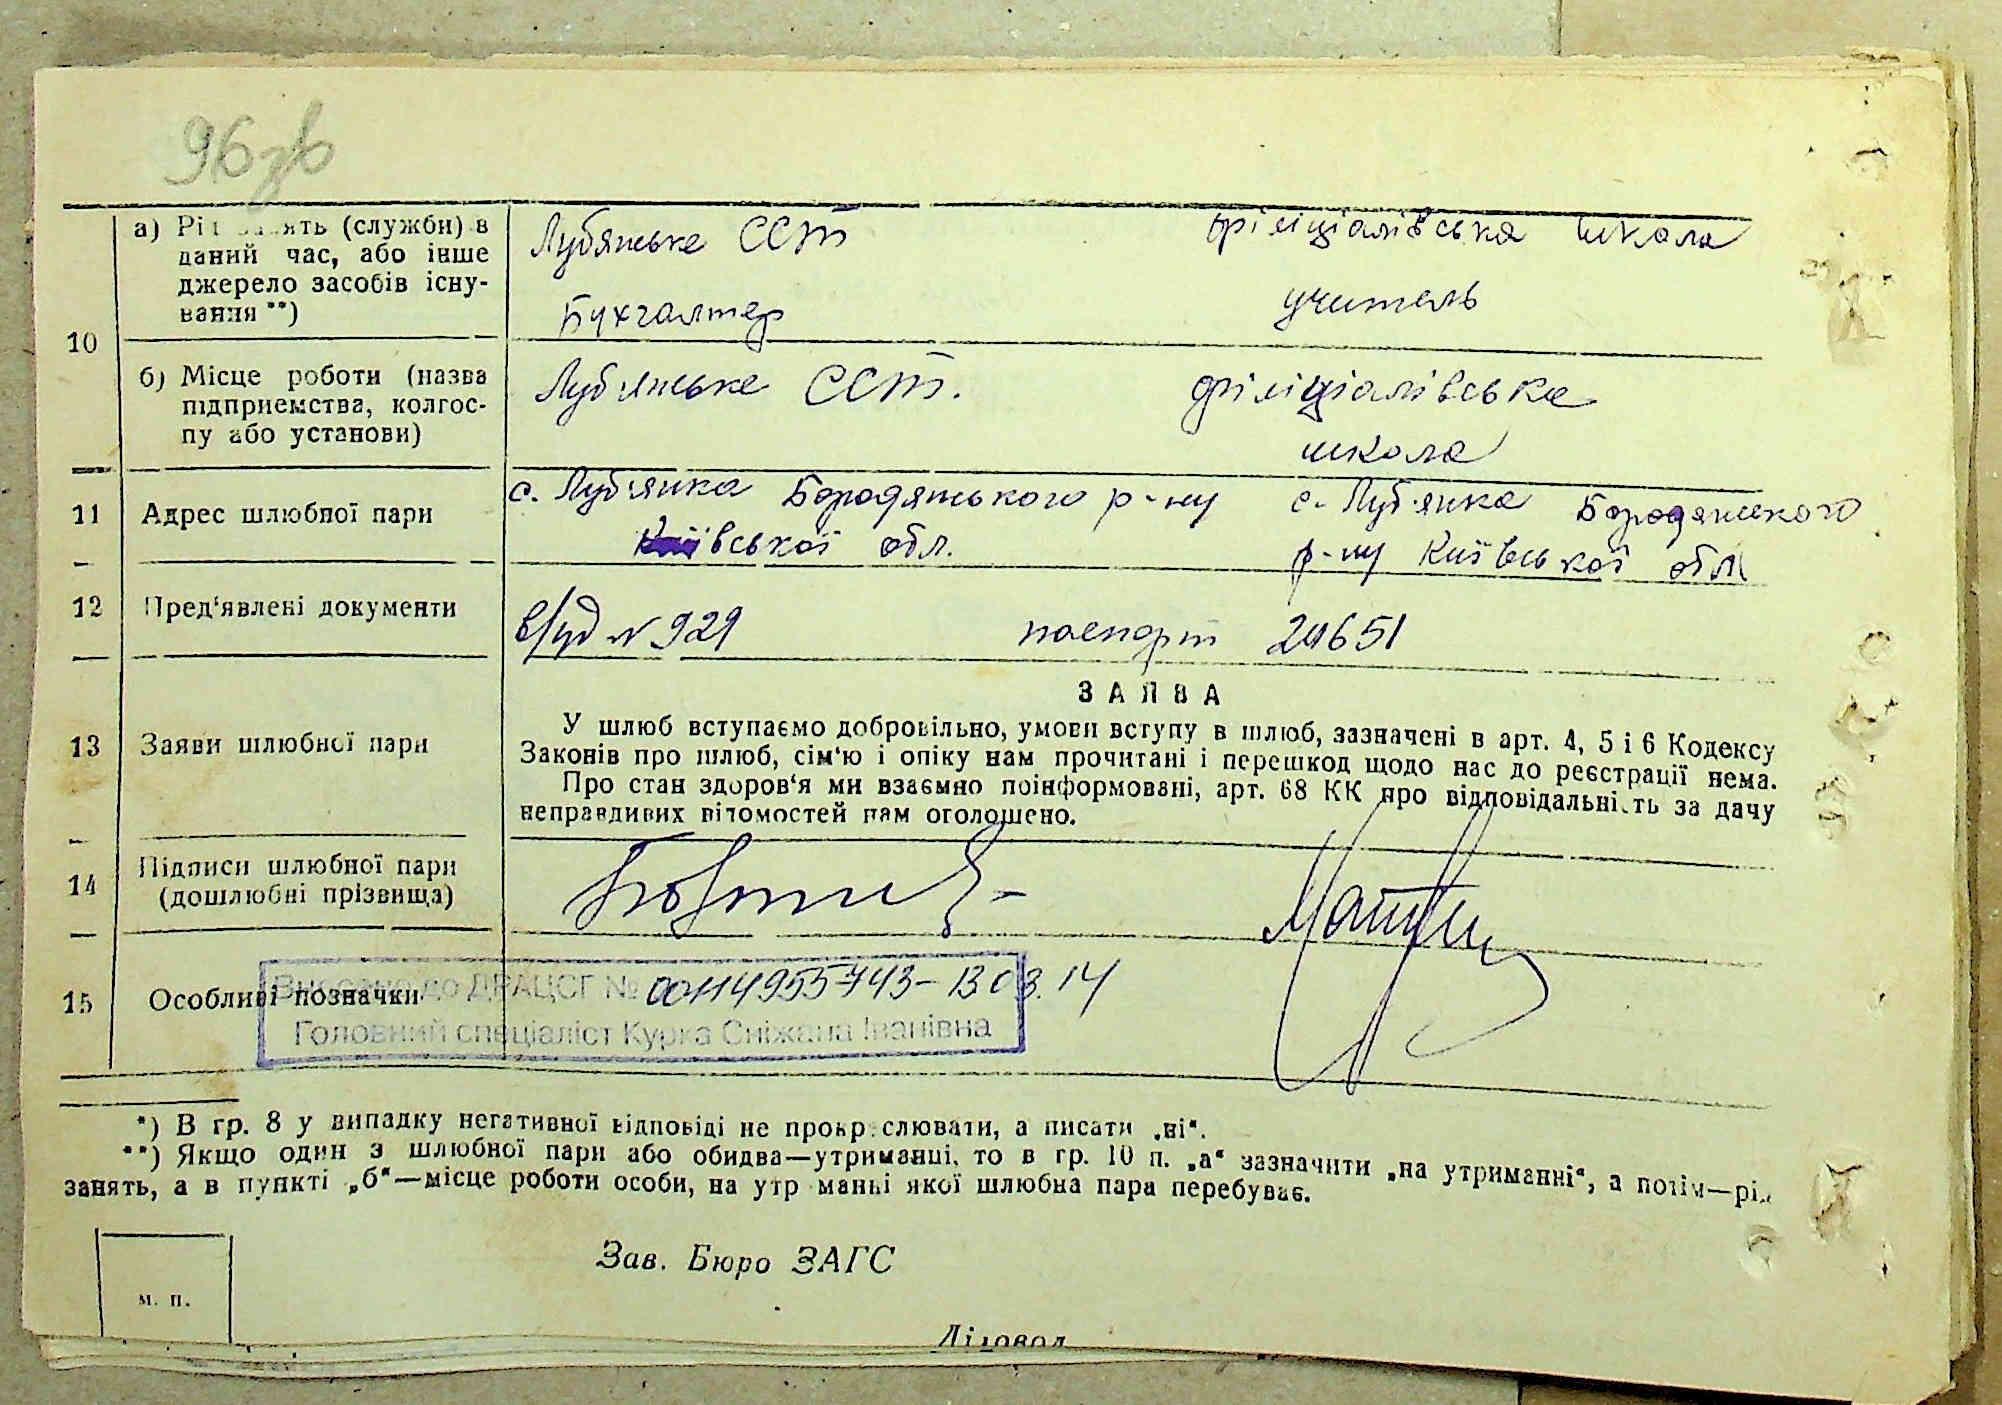 96зв
а) Рід занять (служби) в
даний час, або інше
джерело засобів існу-
вання **)
Лубянське ССТ
філіціалівська школа
Бухгалтер
учитель
10
б) Місце роботи (назва
підприємства, колгос-
пу або установи)
Луб'янське ССТ.
філіціалівська
школа
11
Адрес шлюбної пари
с. Луб'янка Бородянського р-ну
Київської обл.
с. Луб'янка Бородянського
р-ну Київської обл
12
Пред'явлені документи
в/уд № 929
паспорт
13
Заяви шлюбної пари
ЗАЯВА
У шлюб вступаємо добровільно, умови вступу в шлюб, зазначені в арт. 4, 5 і 6 Кодексу
Законів про шлюб, сім'ю і опіку нам прочитані і перешкод щодо нас до реєстрації нема.
Про стан здоров'я ми взаємно поінформовані, арт. 68 КК про відповідальність за дачу
неправдивих відомостей нам оголошено.
14
Підписи шлюбної пари
(дошлюбні прізвища)
15
Особливі позначки
до ДРАЦСГ № 00114955743-13.03.14
Головний спеціаліст Курка Сніжана Іванівна
*) В гр. 8 у випадку негативної відповіді не прокреслювати, а писати „ні“.
**) Якщо один з шлюбної пари або обидва—утриманці, то в гр. 10 п. „а“ зазначити „на утриманні“, а потім—рід
занять, а в пункті „б“—місце роботи особи, на утриманні якої шлюбна пара перебуває.
Зав. Бюро ЗАГС
м. п.
Діловод